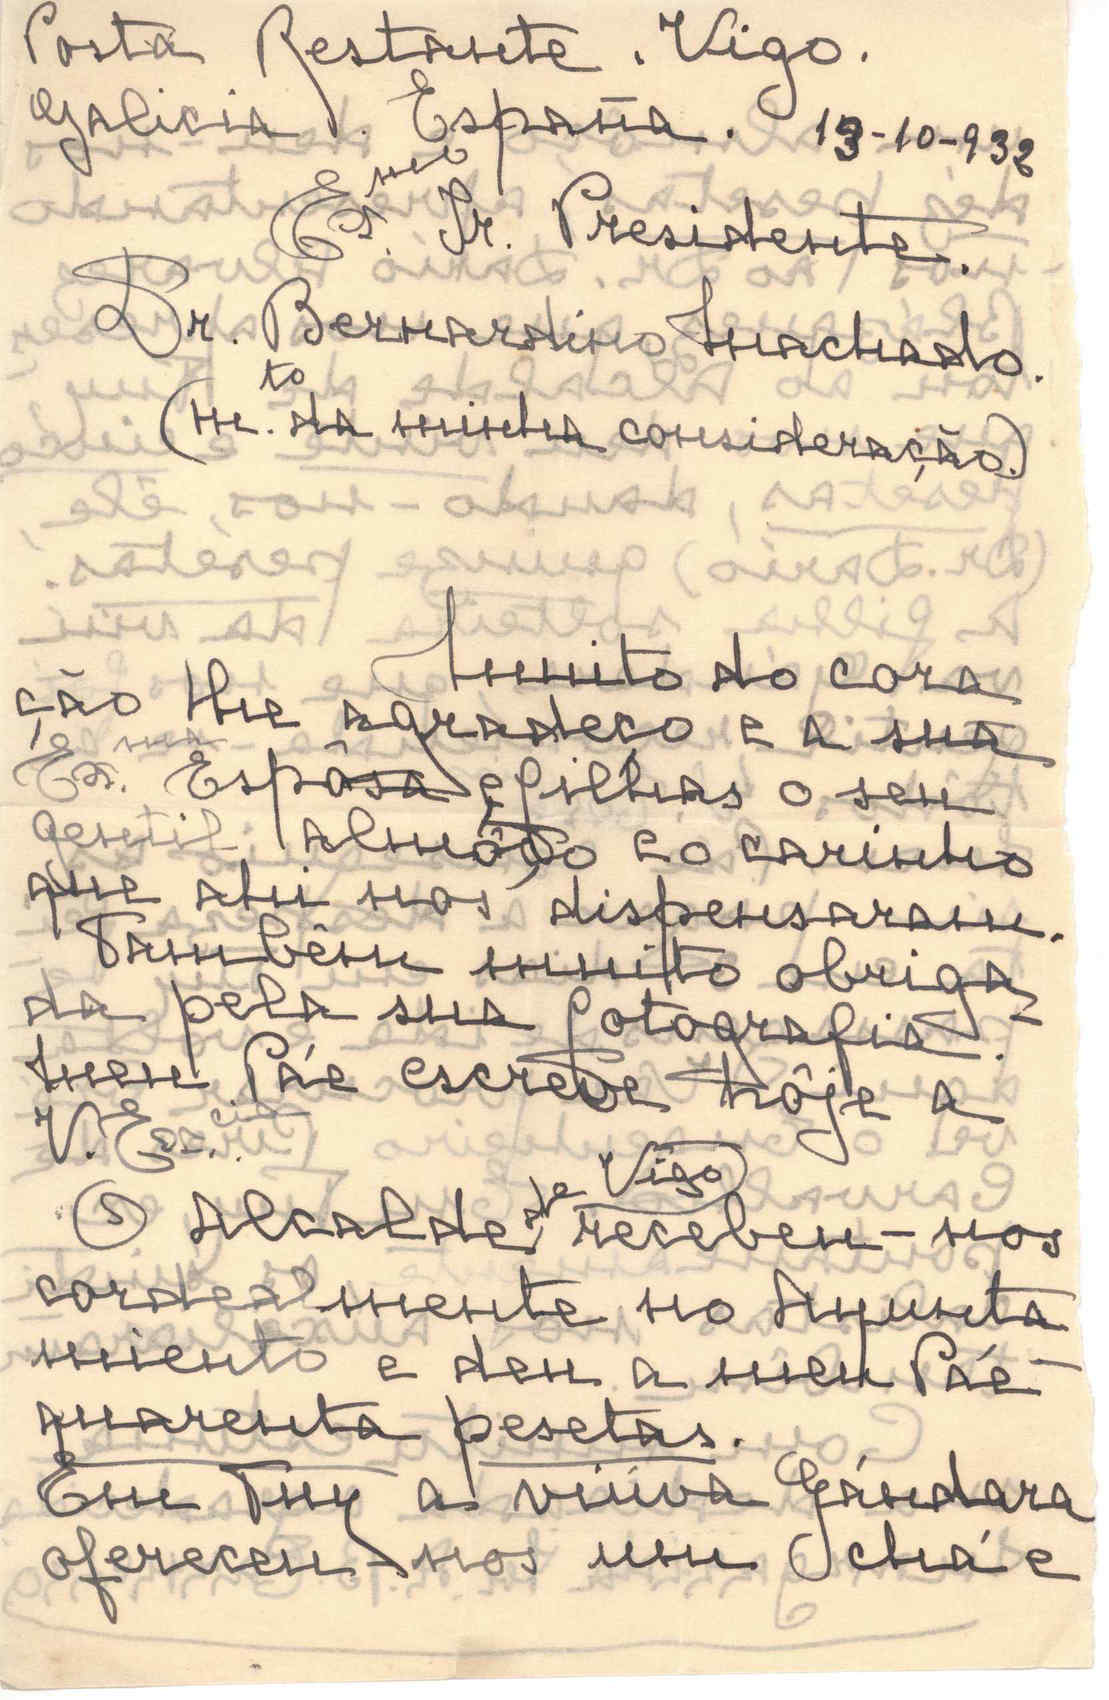 Posta Restante. Vigo.
Galicia. España. 13-10-932
Ex.mo Sr. Presidente.
Dr. Bernardino Machado.
(m.to da minha consideração.)
Muito do cora
ção lhe agradeço e a sua
Ex.ma Espôsa e filhas o seu
gentil almôço e o carinho
que ahi nos dispensaram.
Também muito obriga-
da pela sua fotografia.
Meu Páe escreve hôje a
V. Ex.cia.
O Alcalde de Vigo recebeu-nos
cordealmente no Ayunta
miento e deu a meu Páe
quarenta pesetas.
Em Tuy a viúva Gándara
ofereceu-nos um chá e